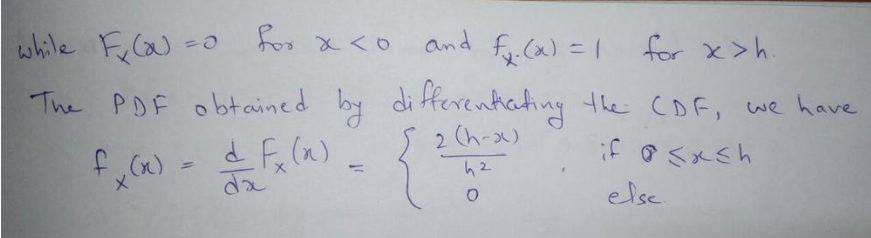 while F_X(x) = 0 for x < 0 and f_X.(x) = 1 for x > h.
The PDF obtained by differentiating the CDF, we have
f_X(x) = d/dx F_X(x) = { 2(h-x)/h2 , if 0 ≤ x ≤ h
0 else